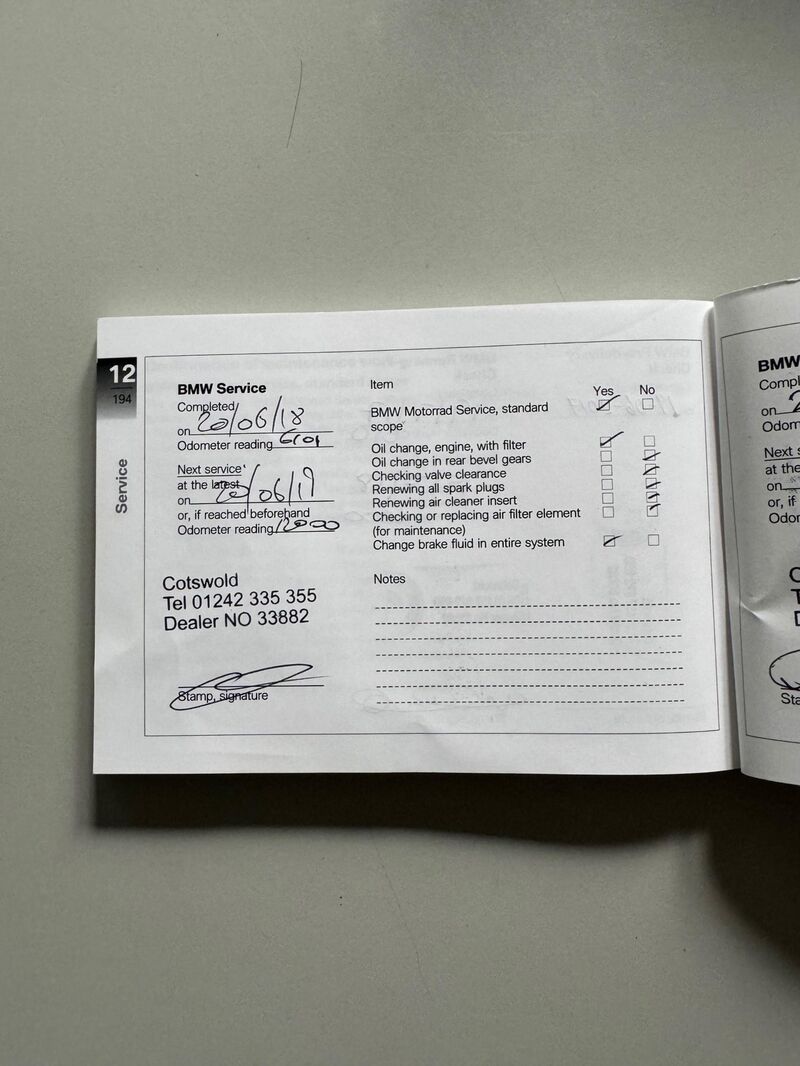 12
194
Service
BMW Service
Completed
on 20/06/18
Odometer reading 6101
Next service
at the latest
on 20/06/19
or, if reached beforehand
Odometer reading 12000
Cotswold
Tel 01242 335 355
Dealer NO 33882
Stamp, signature
Item
Yes No
BMW Motorrad Service, standard
scope
Oil change, engine, with filter
Oil change in rear bevel gears
Checking valve clearance
Renewing all spark plugs
Renewing air cleaner insert
Checking or replacing air filter element
(for maintenance)
Change brake fluid in entire system
Notes
BMW
Compl
on 2
Odom
Next s
at the
on
or, if
Odor
Sta